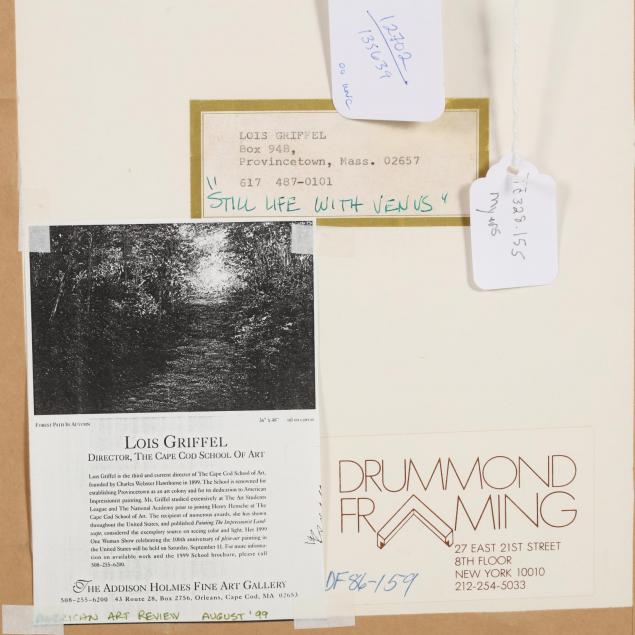 12702
135639
LOIS GRIFFEL
Box 948,
Provincetown, Mass. 02657
617 487-0101
"STILL LIFE WITH VENUS"
FOREST PATH IN AUTUMN
OIL ON CANVAS
LOIS GRIFFEL
DIRECTOR, THE CAPE COD SCHOOL OF ART
Lois Griffel is the third and current director of The Cape Cod School of Art,
founded by Charles Webster Hawthorne in 1899. The School is renowned for
establishing Provincetown as an art colony and for its dedication to American
Impressionist painting. Ms. Griffel studied extensively at The Art Students
League and The National Academy prior to joining Henry Hensche at The
Cape Cod School of Art. The recipient of numerous awards, she has shown
throughout the United States, and published Painting The Impressionist Land-
scape, considered the exemplary source on seeing color and light. Her 1999
One Woman Show celebrating the 100th anniversary of plein-air painting in
the United States will be held on Saturday, September 11. For more informa-
tion on available work and the 1999 School brochure, please call
508-255-6200.
THE ADDISON HOLMES FINE ART GALLERY
508-255-6200 43 Route 28, Box 2756, Orleans, Cape Cod, MA 02653
AMERICAN ART REVIEW AUGUST '99
DRUMMOND
FRAMING
27 EAST 21ST STREET
8TH FLOOR
NEW YORK 10010
212-254-5033
DF86-159